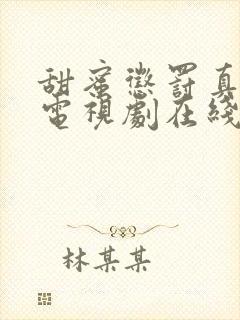 甜蜜懲罰真
電視劇在綫
林某某